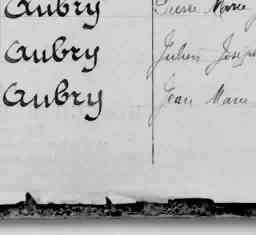 Aubry Pierre Marie
Aubry Julien Joseph
Aubry Jean Marie